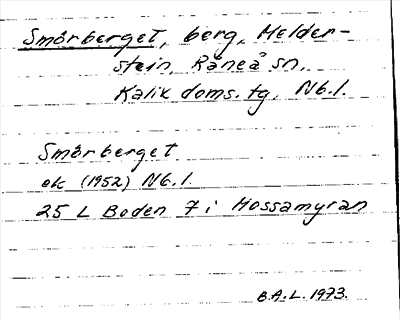 Smörberget, berg, Melder-
stein, Råneå sn,
Kalix doms. tg, Nb. l.
Smörberget
ek (1952) Nb. l.
25 L Boden 7 i Mossamyran
B.A.L. 1973.